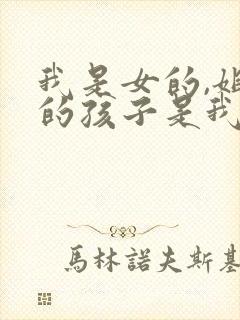 我是女的,姐
的孩子是我
馬林諾夫斯基